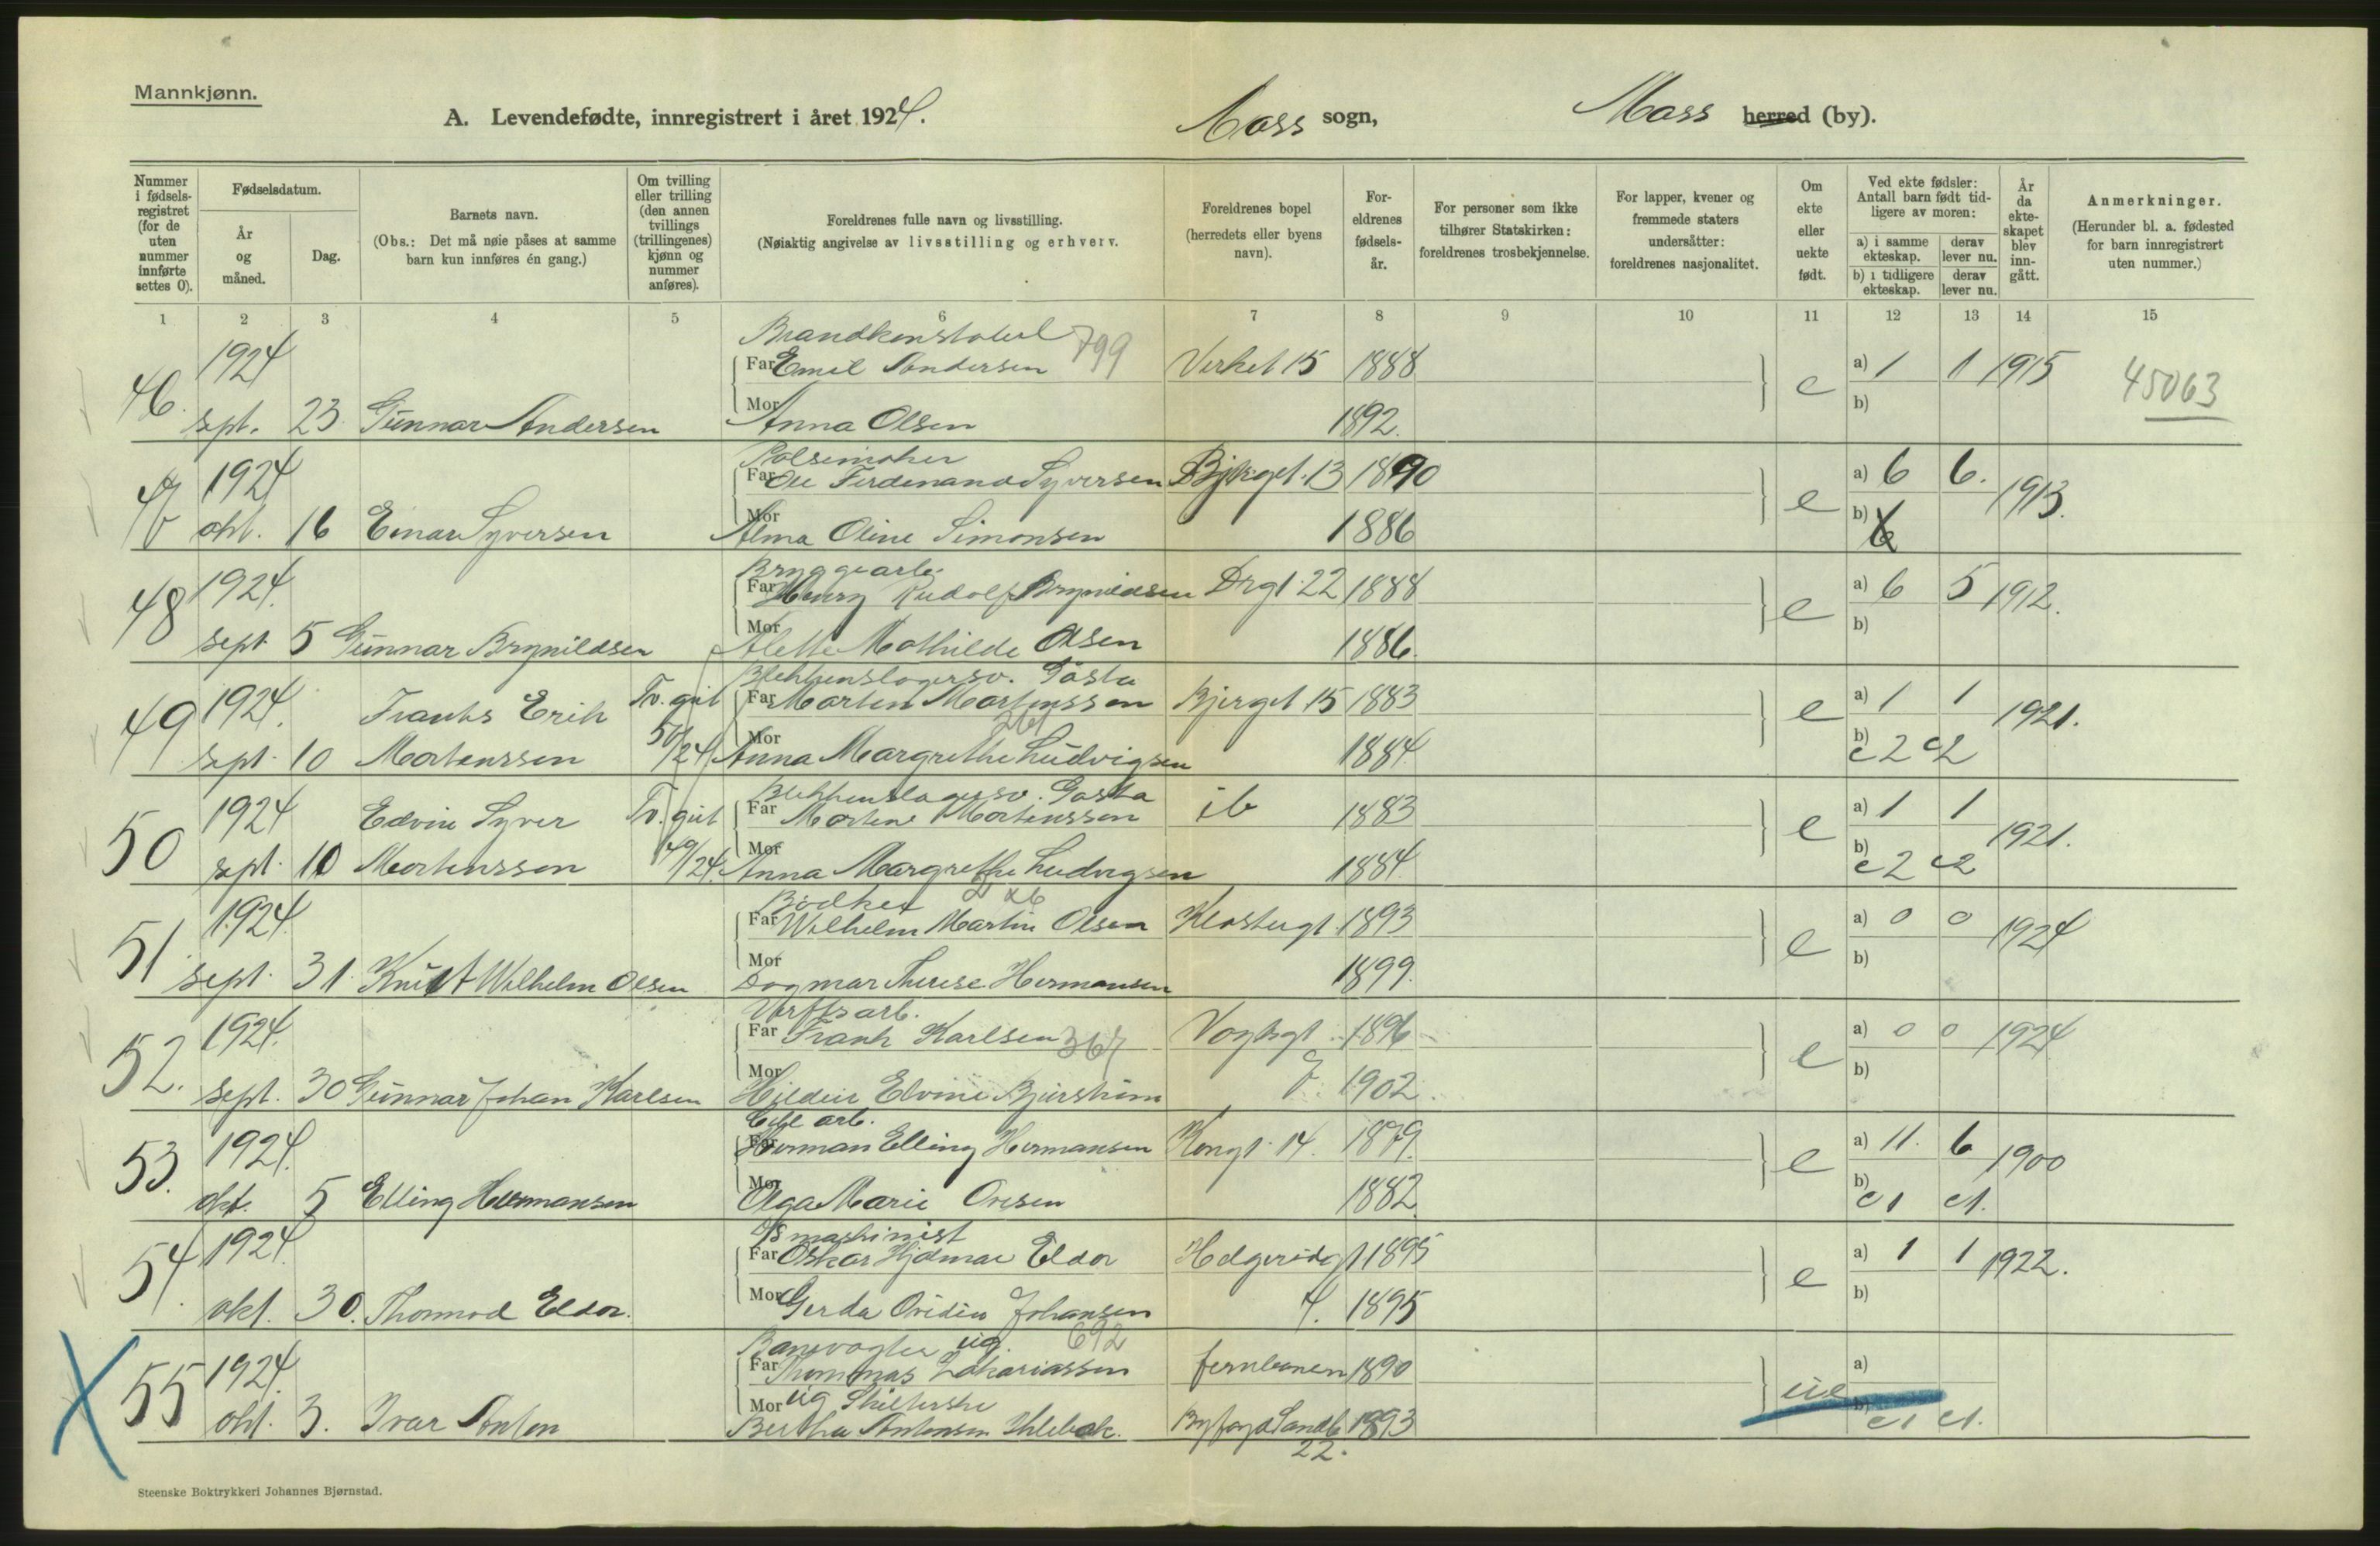 Mannkjønn.
A. Levendefødte, innregistrert i året 1924. Moss sogn, Moss herred (by).
Nummer i fødsels-registret (for de uten nummer innførte settes 0).
Fødselsdatum.
År og måned.
Dag.
Barnets navn.
(Obs.: Det må nøie påses at samme barn kun innføres én gang.)
Om tvilling eller trilling (den annen tvillings (trillingenes) kjønn og nummer anføres).
Foreldrenes fulle navn og livsstilling.
(Nøiaktig angivelse av livsstilling og erhverv.
Foreldrenes bopel (herredets eller byens navn).
For-eldrenes fødsels-år.
For personer som ikke tilhører Statskirken: foreldrenes trosbekjennelse.
For lapper, kvener og fremmede staters undersåtter: foreldrenes nasjonalitet.
Om ekte eller uekte født.
Ved ekte fødsler: Antall barn født tid-ligere av moren:
a) i samme ekteskap. derav lever nu.
b) i tidligere ekteskap. derav lever nu.
År da ekte-skapet blev inn-gått.
Anmerkninger.
(Herunder bl. a. fødested for barn innregistrert uten nummer.)
1 2 3 4 5 6 7 8 9 10 11 12 13 14 15
Brandkonstabel 799
1924 Far Emil Andersen Verket 15 1888 a) 1 1 1915 45063
46. sept. 23 Gunnar Andersen Mor Anna Olsen 1892. e b)
Pølsemaker
47 1924 Far Ole Ferdinand Syversen Bjerget. 13 1890 a) 6 6. 1913.
okt. 16 Einar Syversen Mor Alma Oline Simonsen 1886 e b)
Bryggearb.
48 1924. Far Henry Rudolf Brynildsen Drgt. 22 1888 a) 6 5 1912.
sept 5 Gunnar Brynildsen Mor Alette Mathilde Olsen 1886. e b)
Blikkenslagersv. Gøsta
49 1924. Frants Erik Tv. gut Far Morten Mortenssen Bjerget 15 1883 e a) 1 1 1921.
261
sept. 10 Mortenssen 50/24 Mor Anna Margrethe Ludvigsen 1884. b) e2 e2
Blikkenslagersv. Gøsta
50 1924 Edvin Syver Tv. gut Far Morten Mortenssen ib 1883 e a) 1 1 1921.
sept. 10 Mortenssen 49/24. Mor Anna Margrethe Ludvigsen 1884. b) e2 e2
Bødker
51 1924. Far Wilhelm Martin Olsen Klostergt. 1893 e a) 0 0 1924
sept. 31. Knut Wilhelm Olsen Mor Dagmar Therese Hermansen 1899. b)
Verftsarb.
52. 1924. Far Frank Karlsen 367 Vogtsgt. 1896 e a) 0 0 1924
sept. 30 Gunnar Johan Karlsen Mor Elvine 7. 1902. b)
Cell arb.
53. 1924. Far Herman Elling Hermansen Kongt. 14. 1879. e a) 11. 6 1900
okt. 5 Elling Hermansen Mor Olga Marie 1882. b) e1 e1.
maskinist
54. 1924. Far Oskar Hjalmar Eldor 1895 e a) 1 1 1922.
okt. 30. Thormod Eldor. Mor Gerda Johansen 4. 1895 b)
Banevogter ug. 692
55 1924. Far Thommas Zakariassen Jernbanen 1890 a)
ug.
okt. 3. Ivar Anton Mor Bertha Antonsen 1893 ue b) e1 e1.
22.
Steenske Boktrykkeri Johannes Bjørnstad.